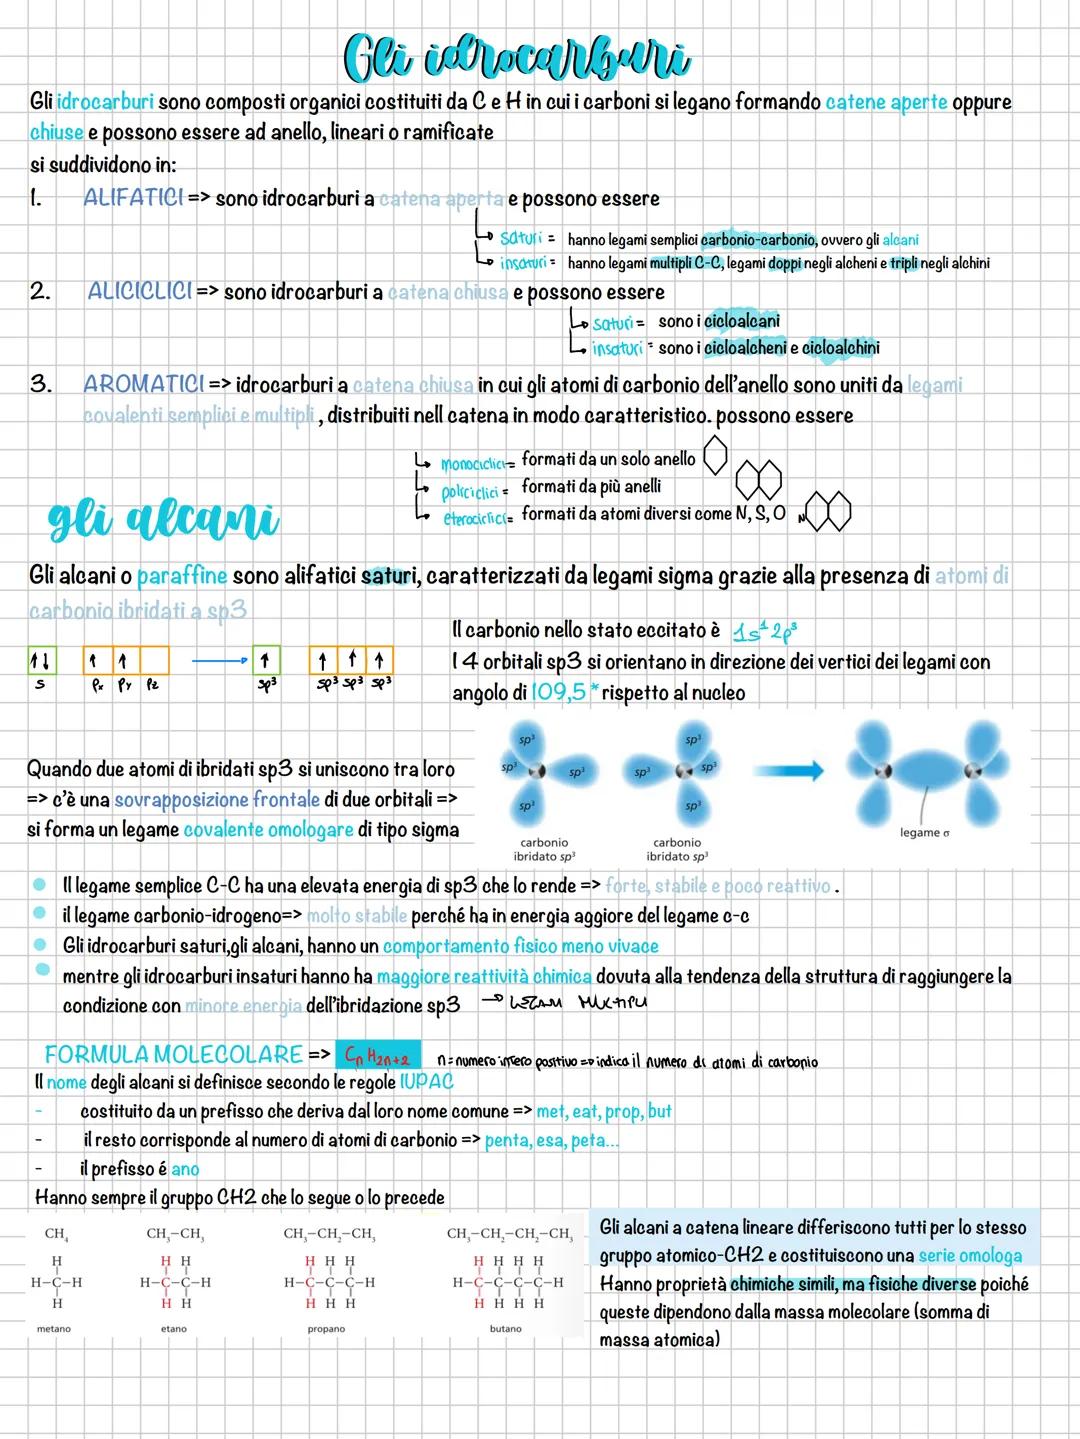 Gli idrocarburi
Gli idrocarburi sono composti organici costituiti da C e H in cui i carboni si legano formando catene aperte oppure
chiuse e possono essere ad anello, lineari o ramificate
si suddividono in:
1. ALIFATICI => sono idrocarburi a catena aperta e possono essere
saturi = hanno legami semplici carbonio-carbonio, ovvero gli alcani
insaturi = hanno legami multipli C-C, legami doppi negli alcheni e tripli negli alchini
2. ALICICLICI => sono idrocarburi a catena chiusa e possono essere
saturi = sono i cicloalcani
insaturi = sono i cicloalcheni e cicloalchini
3. AROMATICI => idrocarburi a catena chiusa in cui gli atomi di carbonio dell'anello sono uniti da legami
covalenti semplici e multipli , distribuiti nell catena in modo caratteristico. possono essere
monociclici = formati da un solo anello
policiclici = formati da più anelli
eterociclici = formati da atomi diversi come N, S, O N
gli alcani
Gli alcani o paraffine sono alifatici saturi, caratterizzati da legami sigma grazie alla presenza di atomi di
carbonio ibridati a sp3
Il carbonio nello stato eccitato è 1s¹ 2p³
I 4 orbitali sp3 si orientano in direzione dei vertici dei legami con
angolo di 109,5 * rispetto al nucleo
↑↓ ↑ ↑ → ↑ ↑ ↑ ↑
s Px Py Pz sp³ sp³ sp³ sp³
Quando due atomi di ibridati sp3 si uniscono tra loro
=> c'è una sovrapposizione frontale di due orbitali =>
si forma un legame covalente omologare di tipo sigma
sp³ sp³
sp³ sp³ sp³ sp³
sp³ sp³
legame σ
carbonio carbonio
ibridato sp³ ibridato sp³
Il legame semplice C-C ha una elevata energia di sp3 che lo rende => forte, stabile e poco reattivo .
il legame carbonio-idrogeno=> molto stabile perché ha in energia aggiore del legame c-c
Gli idrocarburi saturi,gli alcani, hanno un comportamento fisico meno vivace
mentre gli idrocarburi insaturi hanno ha maggiore reattività chimica dovuta alla tendenza della struttura di raggiungere la
condizione con minore energia dell'ibridazione sp3 → LEGAMI MULTIPLI
FORMULA MOLECOLARE => CnH2n+2 n = numero intero positivo => indica il numero di atomi di carbonio
Il nome degli alcani si definisce secondo le regole IUPAC
- costituito da un prefisso che deriva dal loro nome comune => met, eat, prop, but
- il resto corrisponde al numero di atomi di carbonio => penta, esa, peta...
- il prefisso é ano
Hanno sempre il gruppo CH2 che lo segue o lo precede
CH₄ CH₃–CH₃ CH₃–CH₂–CH₃ CH₃–CH₂–CH₂–CH₃
H H H H H H H H H H
H–C–H H–C–C–H H–C–C–C–H H–C–C–C–C–H
H H H H H H H H H H
metano etano propano butano
Gli alcani a catena lineare differiscono tutti per lo stesso
gruppo atomico-CH2 e costituiscono una serie omologa
Hanno proprietà chimiche simili, ma fisiche diverse poiché
queste dipendono dalla massa molecolare (somma di
massa atomica)